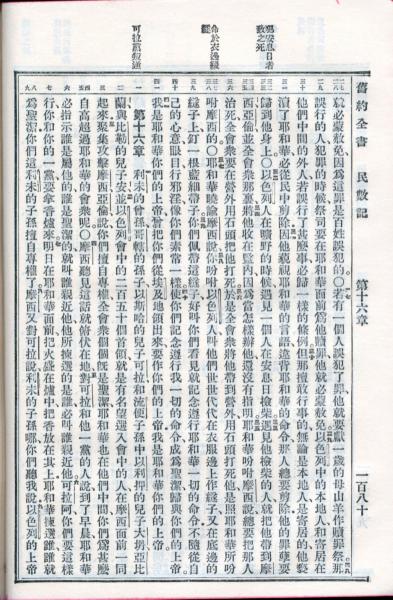 舊約全書 民數記 第十六章 一百八十
就必蒙赦免因爲這罪是百姓誤犯的○若有一個人誤犯了罪他就要獻一歲的母山羊作贖罪祭那
誤行的人犯罪的時候祭司要在耶和華面前爲他贖罪他就必蒙赦免以色列中的本地人和寄居在
他們中間的外人若誤行了甚麽事必歸一樣的條例但那擅敢行事的無論是本地人是寄居的他褻
瀆了耶和華必從民中剪除因他藐視耶和華的言語違背耶和華的命令那人總要剪除他的罪孽要
歸到他身上○以色列人在曠野的時候遇見一個人在安息日檢柴遇見他檢柴的人就把他帶到摩
西亞倫並全會衆那裏將他收在監內因爲當怎樣辦他還沒有指明耶和華吩咐摩西說總要把那人
治死全會衆要在營外用石頭把他打死於是全會衆將他帶到營外用石頭打死他是照耶和華所吩
咐摩西的○耶和華曉諭摩西說你吩咐以色列人叫他們世世代代在衣服邊上作繸子又在底邊的
繸子上釘一根藍細帶子你們佩帶這繸子好叫你們看見就記念遵行耶和華一切的命令不隨從自
己的心意眼目行邪淫像你們素常一樣使你們記念遵行我一切的命令成爲聖潔歸與你們的上帝
我是耶和華你們的上帝曾把你們從埃及地領出來要作你們的上帝我是耶和華你們的上帝
第十六章 利未的曾孫哥轄的孫子以斯哈的兒子可拉和流便子孫中以利押的兒子大坍亞比
蘭與比勒的兒子安並以色列會中的二百五十個首領就是有名望選入會中的人在摩西面前一同
起來聚集攻擊摩西亞倫說你們擅自專權全會衆個個旣是聖潔耶和華也在他們中間你們爲甚麽
自高超過耶和華的會衆呢○摩西聽見這話就俯伏在地對可拉和他一黨的人說到了早晨耶和華
必指示誰是屬他的誰是聖潔的就叫誰親近他他所揀選的是誰必叫誰親近他可拉阿你們要這樣
行你和你的一黨要拿香爐來明日在耶和華面前把火盛在爐中把香放在其上耶和華揀選誰誰就
爲聖潔你們這利未的子孫擅自專權了摩西又對可拉說利未的子孫哪你們聽我說以色列的上帝
犯安息日者
致之死
命於衣邊綴
繸
可拉黨叛逆